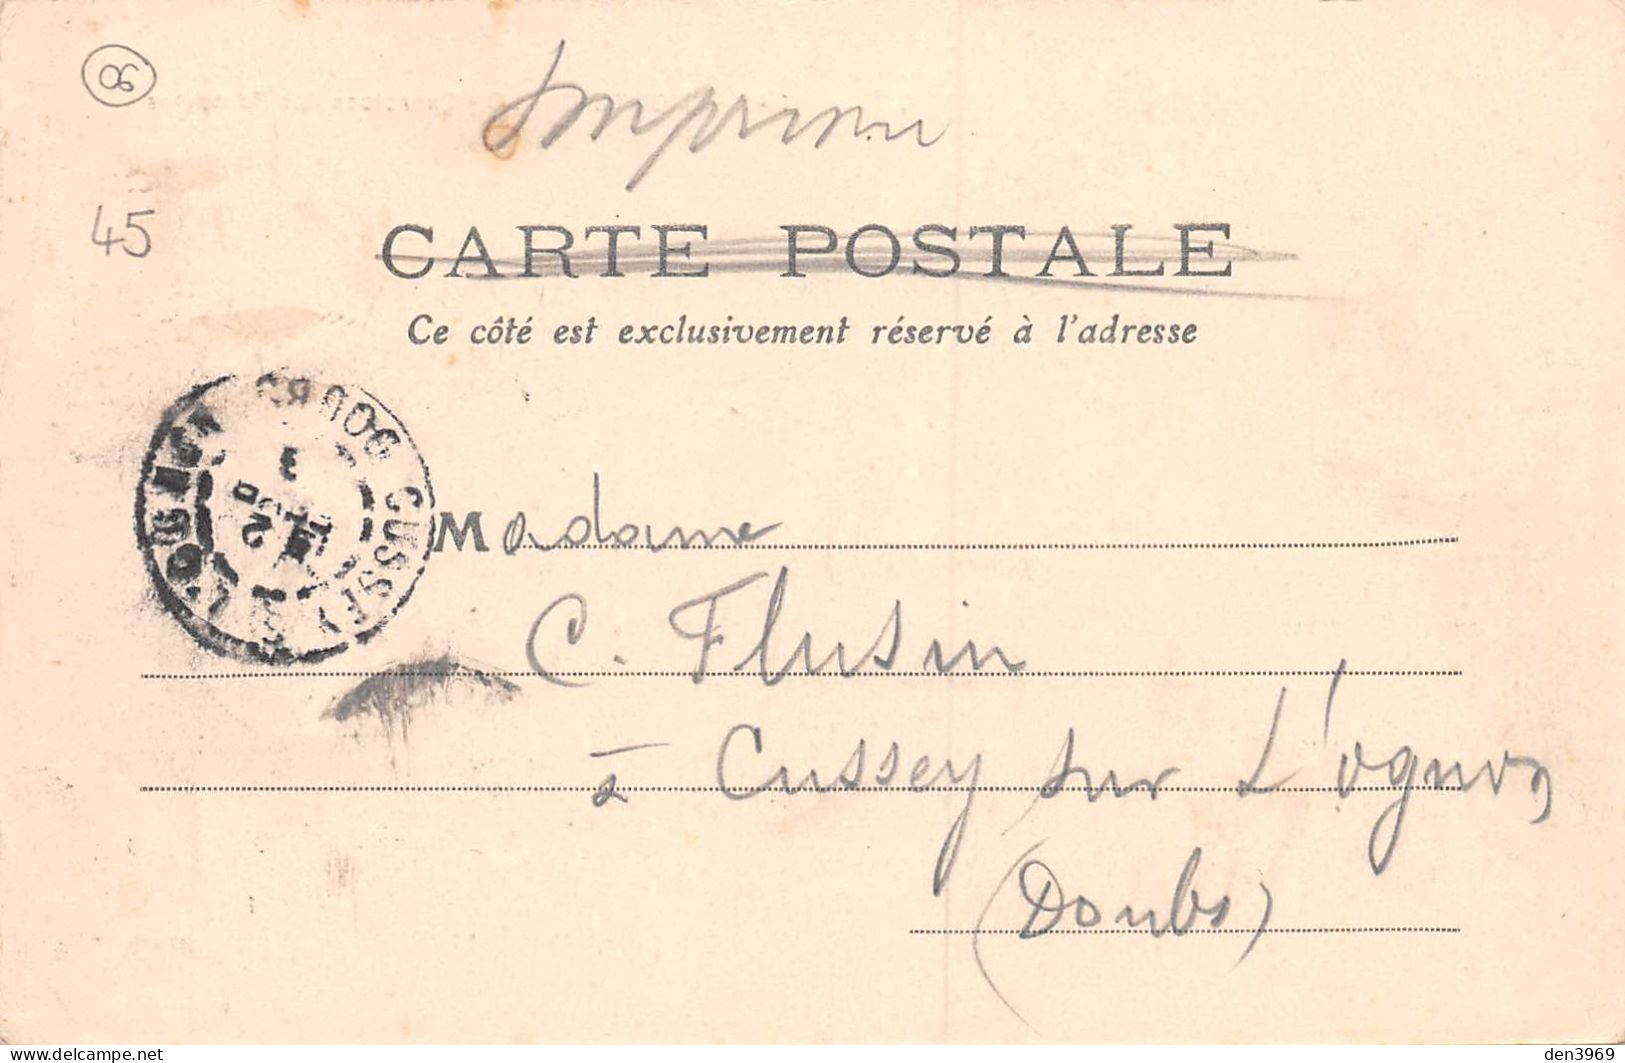 90
Imprimé
45
CARTE POSTALE
Ce côté est exclusivement réservé à l'adresse
CUSSEY S L'OGNON DOUBS
Madame
C. Flusin
à Cussey sur L'ognon
(Doubs)
den3969